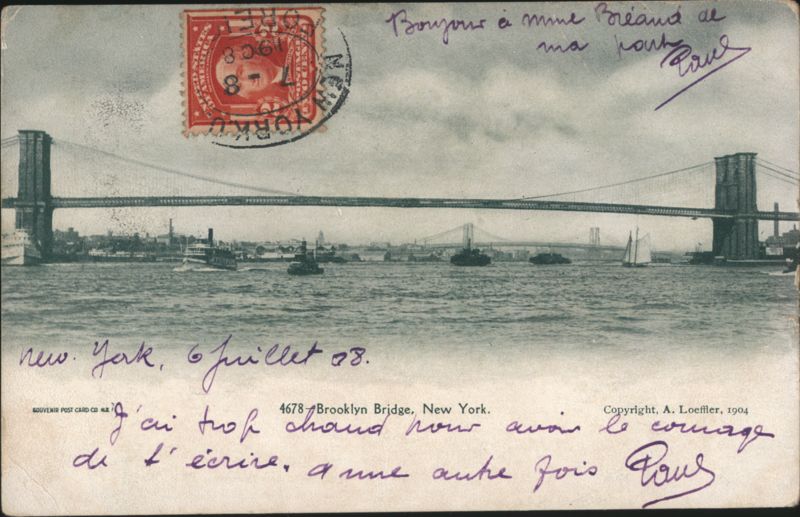 Bonjour à mme Bréand de
ma part Paul
UNITED STATES OF AMERICA
POSTAGE
NEW YORK
7 - 8
1908
New. York, 6 Juillet 08.
SOUVENIR POST CARD CO. N.Y.
4678 - Brooklyn Bridge, New York.
Copyright, A. Loeffler, 1904
J'ai trop chaud pour avoir le courage
de t'écrire. a une autre fois Paul